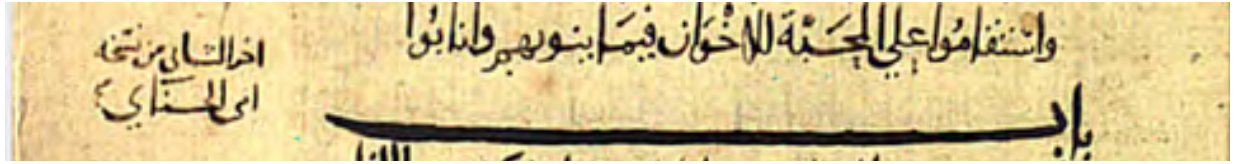 واستقاموا على المحبة للاخوان فيما ينوبهم وانابوا
اخر الثاني من نسخة
ابى
باب